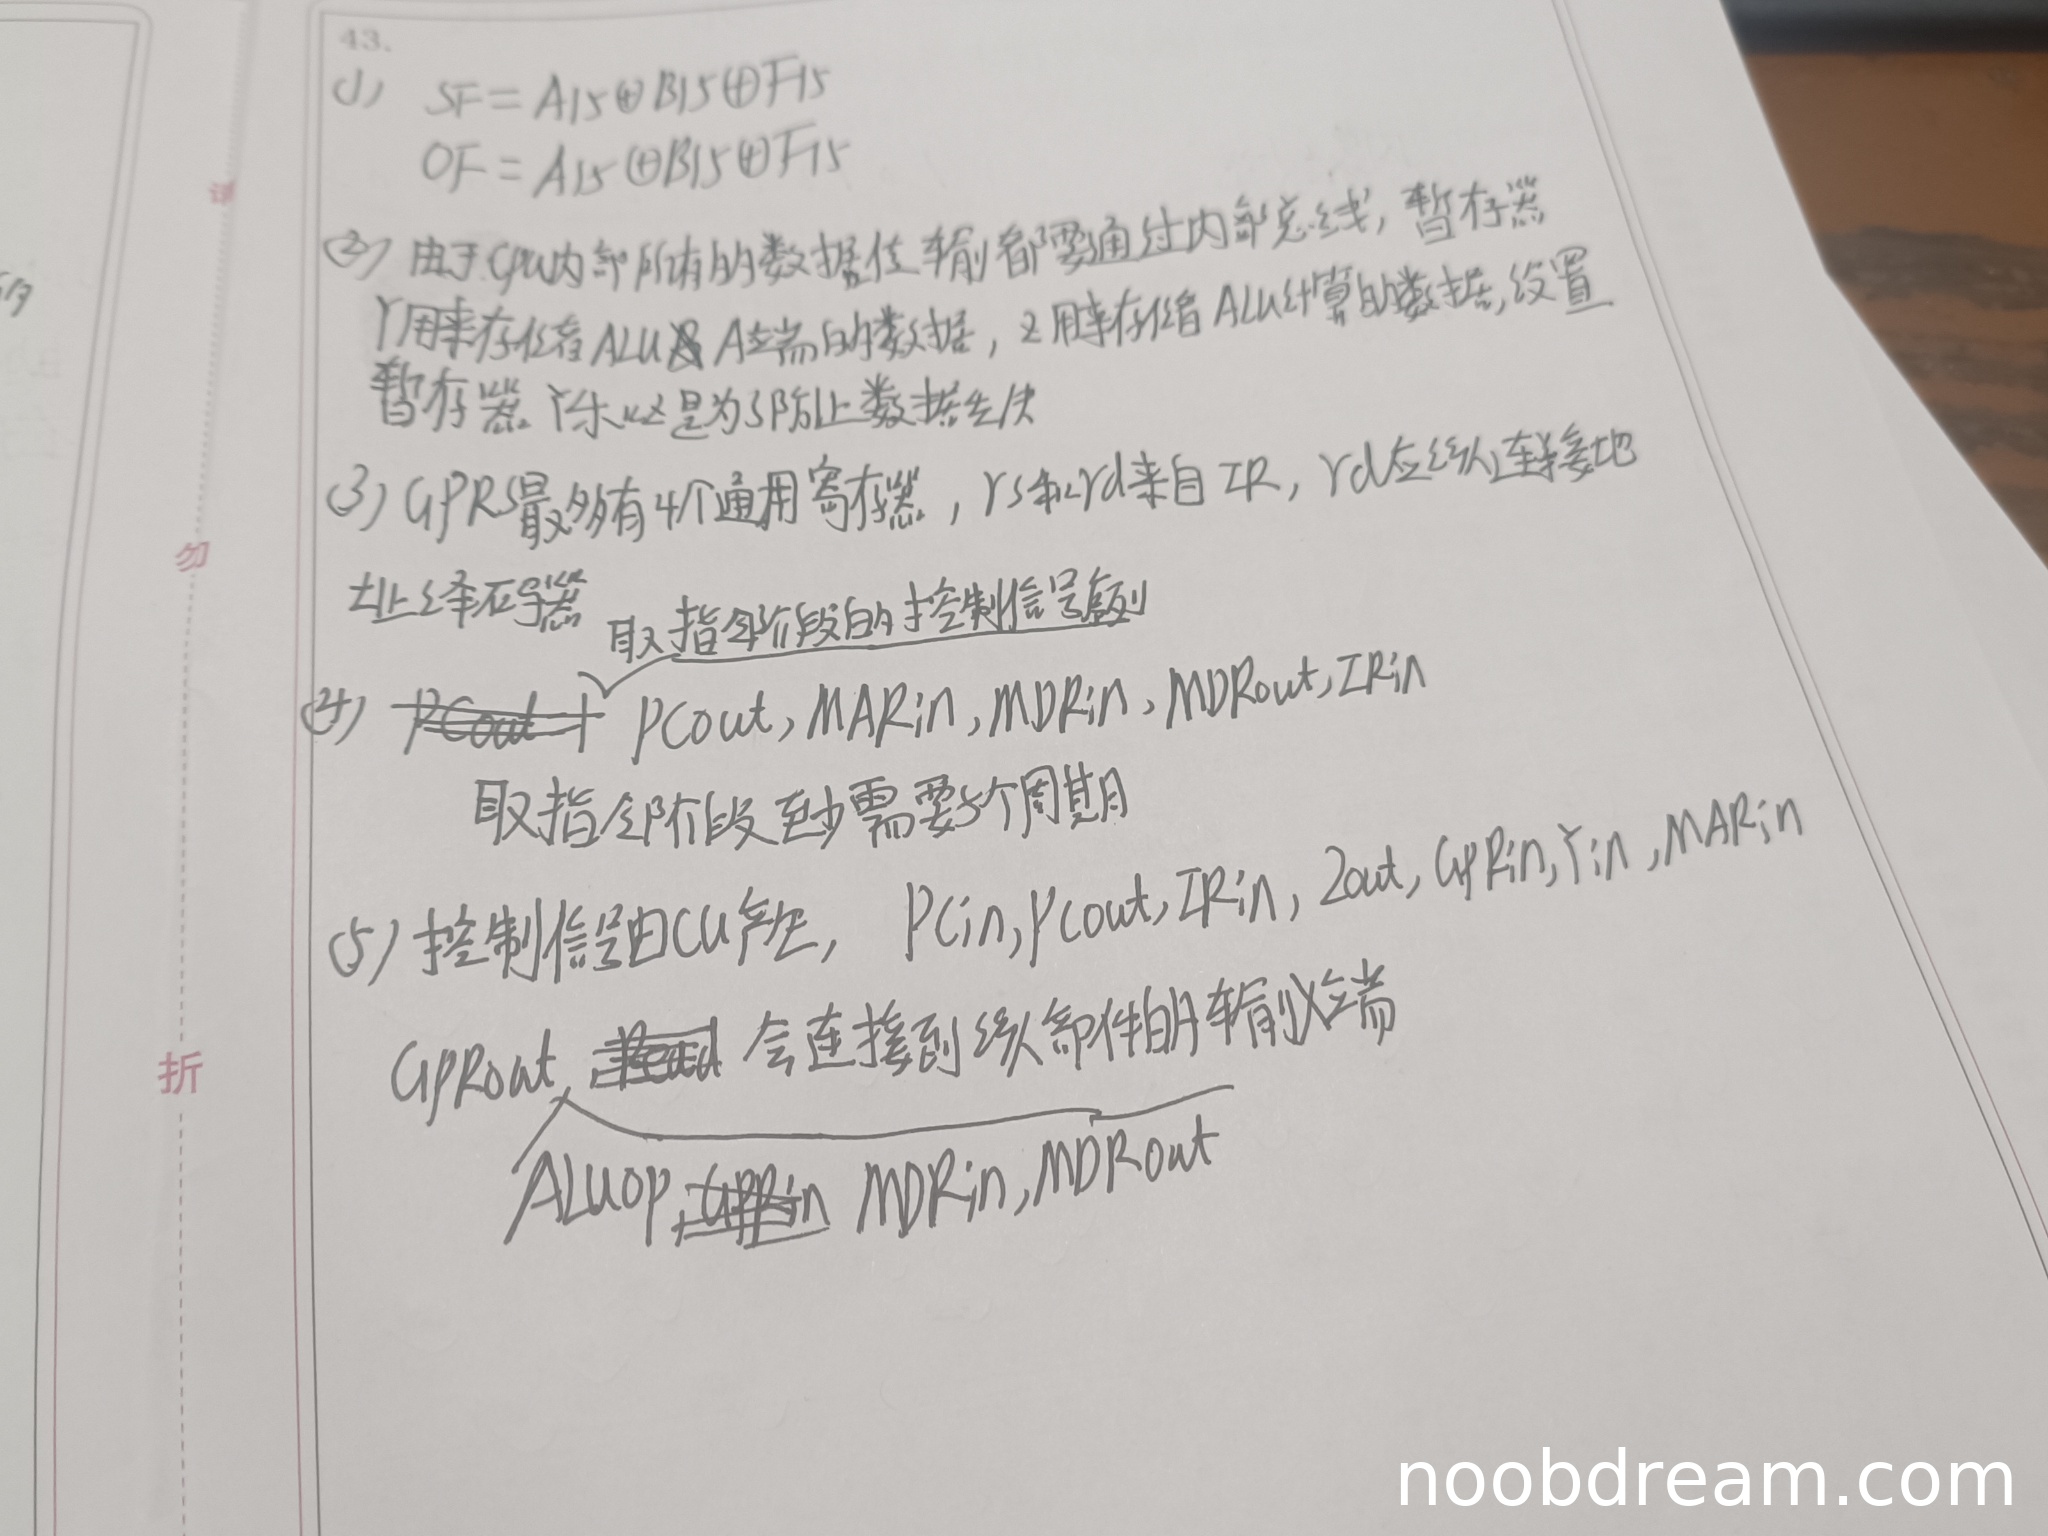 43.
(1) SF = A15⊕B15⊕F15
OF = A15⊕B15⊕F15
(2) 由于CPU内部所有的数据传输都要通过内部总线, 暂存器
Y用来存储着ALU A端的数据, Z用来存储ALU计算的数据, 设置
暂存器Y和Z是为了防止数据丢失
(3) GPRS最多有4个通用寄存器, rs和rd来自IR, rd应给以连接地
址译码器
取指令阶段的控制信号序列
(4) PCout, MARin, MDRin, MDRout, IRin
取指令阶段至少需要5个周期
(5) 控制信号由CU产生, PCin, PCout, IRin, Zout, GPRin, Yin, MARin
GPRout, 会连接到以部件的输入端
ALUop, MDRin, MDRout
谨
勿
折
noobdream.com